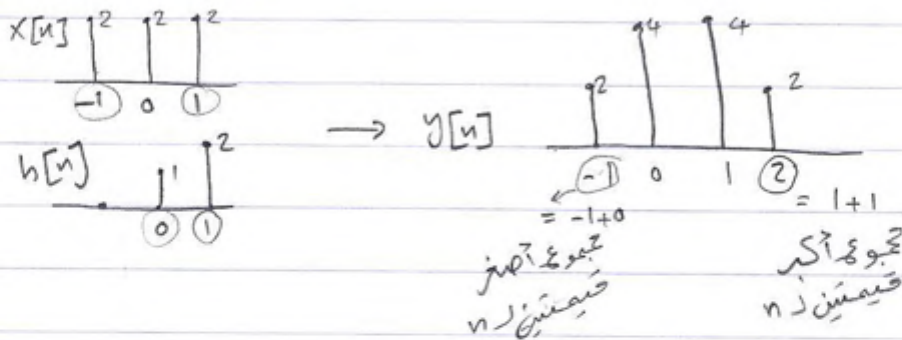 x[n] 2 2 2
-1 0 1
h[n] 1 2
0 1
→ y[n] 2 4 4 2
-1 0 1 2
= -1+0 = 1+1
مجموع أصغر
قيمتين لـ n
مجموع أكبر
قيمتين لـ n